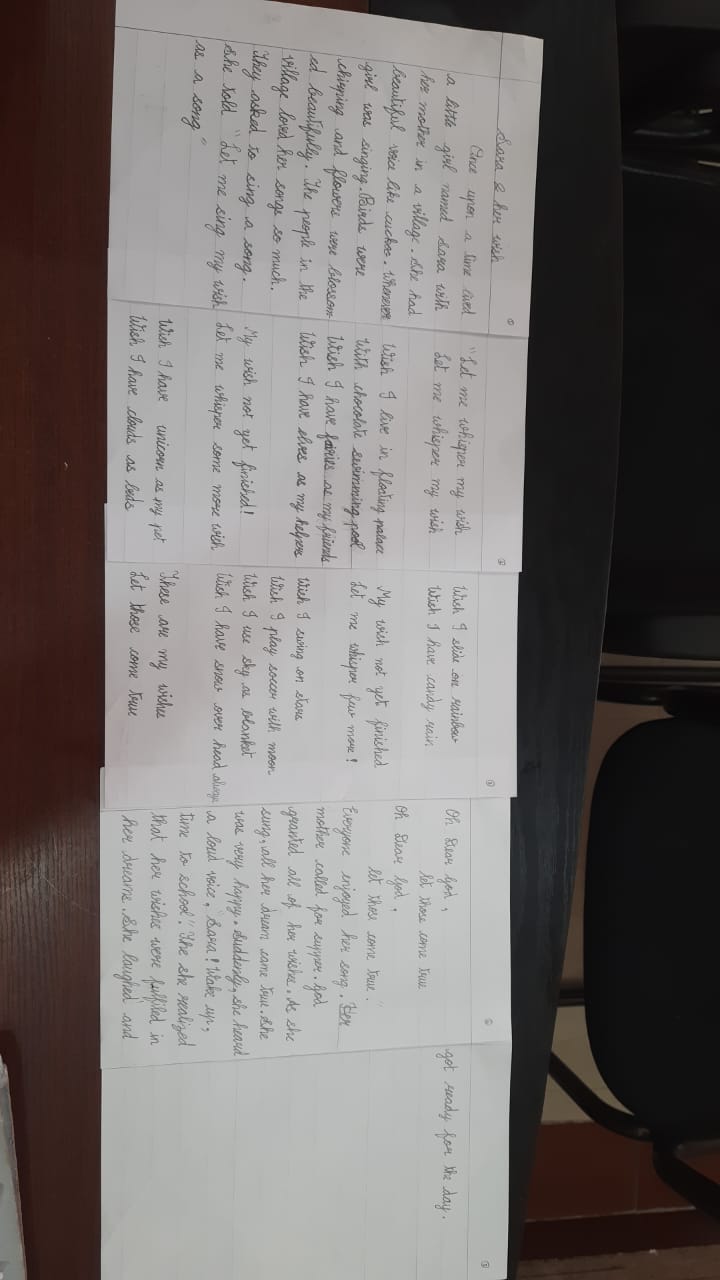 Sara & her wish
①
Once upon a time lived
a little girl named Sara with
her mother in a village. She had
beautiful voice like cuckoo. Whenever
girl was singing. Bairds were
chirping and flowers were blossom-
ed beautifully. The people in the
village loved her songs so much.
They asked to sing a song.
She told "Let me sing my wish
as a song"
②
"Let me whisper my wish
Let me whisper my wish
Wish I live in floating palace
With chocolate swimming pool
Wish I have fairies as my friends
Wish I have elves as my helpers
My wish not yet finished!
Let me whisper some more wish
Wish I have unicorn as my pet
Wish I have clouds as beds
③
Wish I slide on rainbow
Wish I have candy rain
My wish not yet finished
Let me whisper few more!
Wish I swing on stars
Wish I play soccer with moon
Wish I use sky as blanket
Wish I have snow over head always
These are my wishes
Let those come true
Oh Dear God,
let those come true
Oh Dear God,
let those come true."
Everyone enjoyed her song. Her
mother called for supper. God
granted all of her wishes. As she
sung, all her dream came true. She
was very happy. Suddenly, she heard
a loud voice, "Sara! Wake up,
time to school." The she realized
that her wishes were fulfilled in
her dreams. She laughed and
got ready for the day.